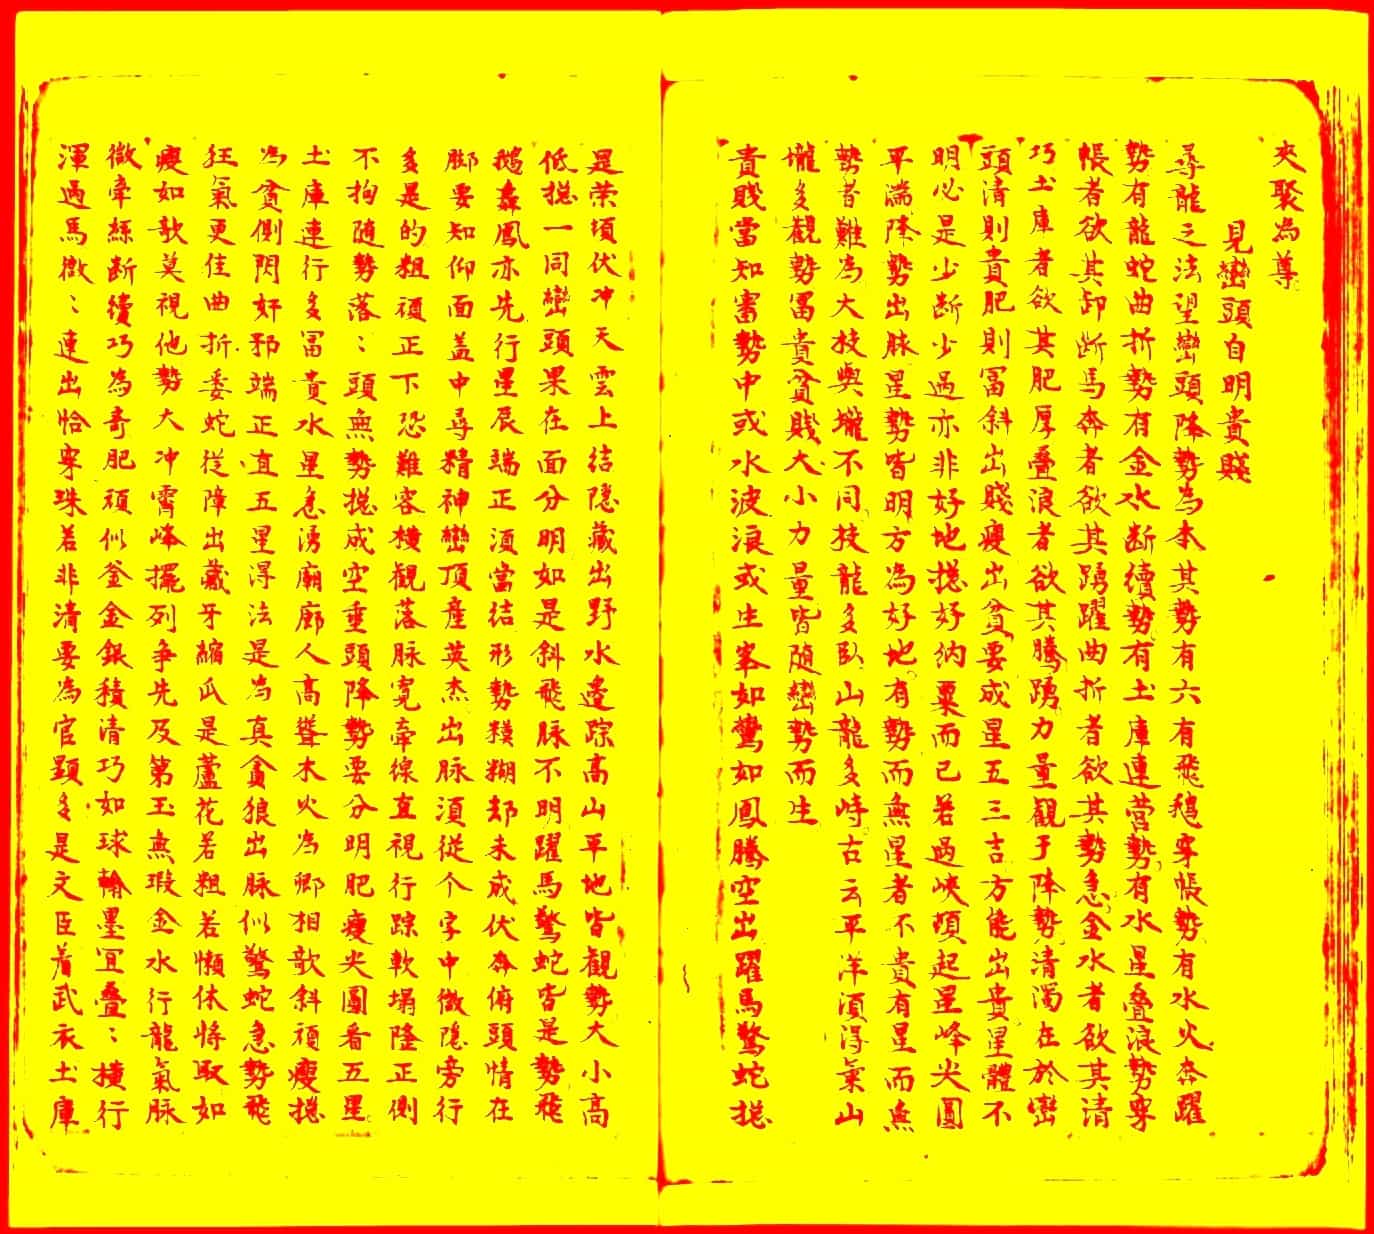 夾聚為尊
見巒頭自明貴賤
尋龍之法望巒頭降勢為本其勢有六有飛鵝穿帳勢有水火奔躍
勢有龍蛇曲折勢有金水断續勢有土庫連营勢有水星叠浪勢穿
帳者欲其卸断馬奔者欲其踴躍曲折者欲其勢急金水者欲其清
巧土庫者欲其肥厚叠浪者欲其騰踴力量觀于降勢清濁在於巒
頭清則貴肥則冨斜出賤瘦出貧要成星五三吉方能出貴星體不
明必是少断少過亦非好地捴好納粟而已若過峽頓起星峰尖圓
平端降勢出脉星勢皆明方為好地有勢而無星者不貴有星而無
勢者難為大技與壠不同技龍多臥山龍多峙古云平洋湏得氣山
壠多觀勢冨貴貧賤大小力量皆随巒勢而生
貴賤當知審勢中或水波浪或生峯如鸞如鳳騰空出躍馬驚蛇捴
是荣項伏冲天雲上结隱藏出野水邉踪高山平地皆觀勢大小高
低捴一同巒頭果在面分明如是斜飛脉不明躍馬驚蛇皆是勢飛
鵝舞鳳亦先行星辰端正湏當结形勢糢糊却未成伏奔俯頭情在
脚要知仰面盖中尋精神巒頂産英杰出脉湏從个字中微隱旁行
多是的粗頑正下恐難容横觀落脉寛牽線直視行踪軟塌隆正側
不拘随勢落：頭無勢捴成空垂頭降勢要分明肥瘦尖圓看五星
土庫連行多冨貴水星急湧廟廊人高聳木火為卿相歌斜頑瘦捴
為貧側閃奸邪端正宜五星淂法是為真貪狼出脉似驚蛇急勢飛
狂氣更佳曲折委蛇従障出藏牙縮瓜是蘆花若粗若懶休將取如
瘦如歌莫視他勢大冲霄峰擺列争先及第玉無瑕金水行龍氣脉
微牵絲断續巧為奇肥頑似釜金銀積清巧如球翰墨宜叠：横行
渾過馬微：連出恰穿珠若非清要為官顕多是文臣着武衣土庫